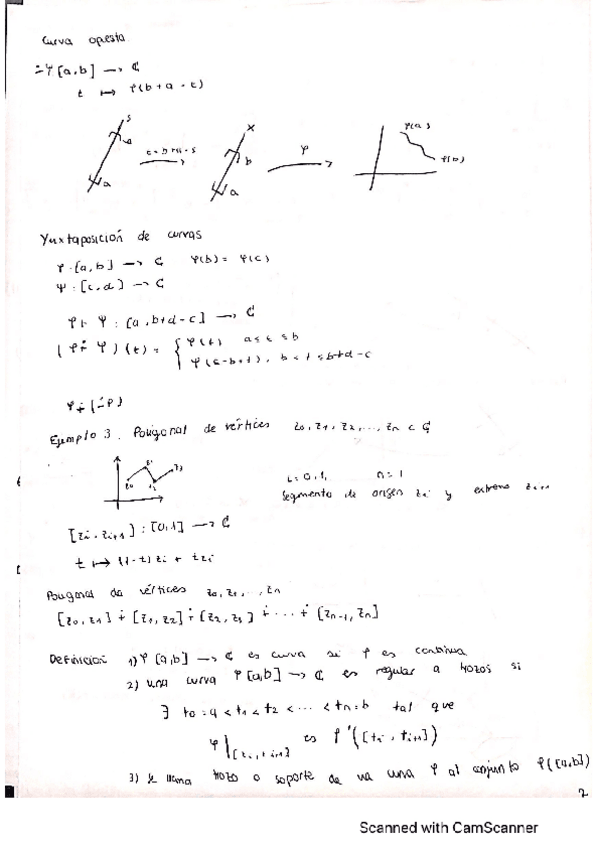 Curva opuesta
∸φ [a,b] → ₵
t ↦ φ(b+a-t)
s
a
x
b
a
φ
φ(a)
φ(b)
Yuxtaposición de curvas
φ: [a,b] → ₵ φ(b) = ψ(c)
ψ: [c,d] → ₵
φ ∔ ψ : [a, b+d-c] → ₵
(φ ∔ ψ)(t) = { φ(t) a ≤ t ≤ b
ψ(c-b+t), b < t ≤ b+d-c
φ ∔ (∸φ)
Ejemplo 3. Poligonal de vértices z0, z1, z2, ..., zn ⊂ ₵
z0 z1 z2 z3
i=0,1, n-1
segmento de origen zi y extremo zi+1
[zi, zi+1] : [0,1] → ₵
t ↦ (1-t)zi + tzi
Poligonal de vértices z0, z1, ..., zn
[z0, z1] ∔ [z1, z2] ∔ [z2, z3] ∔ ... ∔ [zn-1, zn]
Definición 1) φ [a,b] → ₵ es curva si φ es continua
2) una curva φ [a,b] → ₵ es regular a trozos si
∃ t0=a < t1 < t2 < ... < tn=b tal que
φ|[ti, ti+1] es f'([ti, ti+1])
3) se llama trozo o soporte de una curva φ al conjunto φ([a,b])
2
Scanned with CamScanner